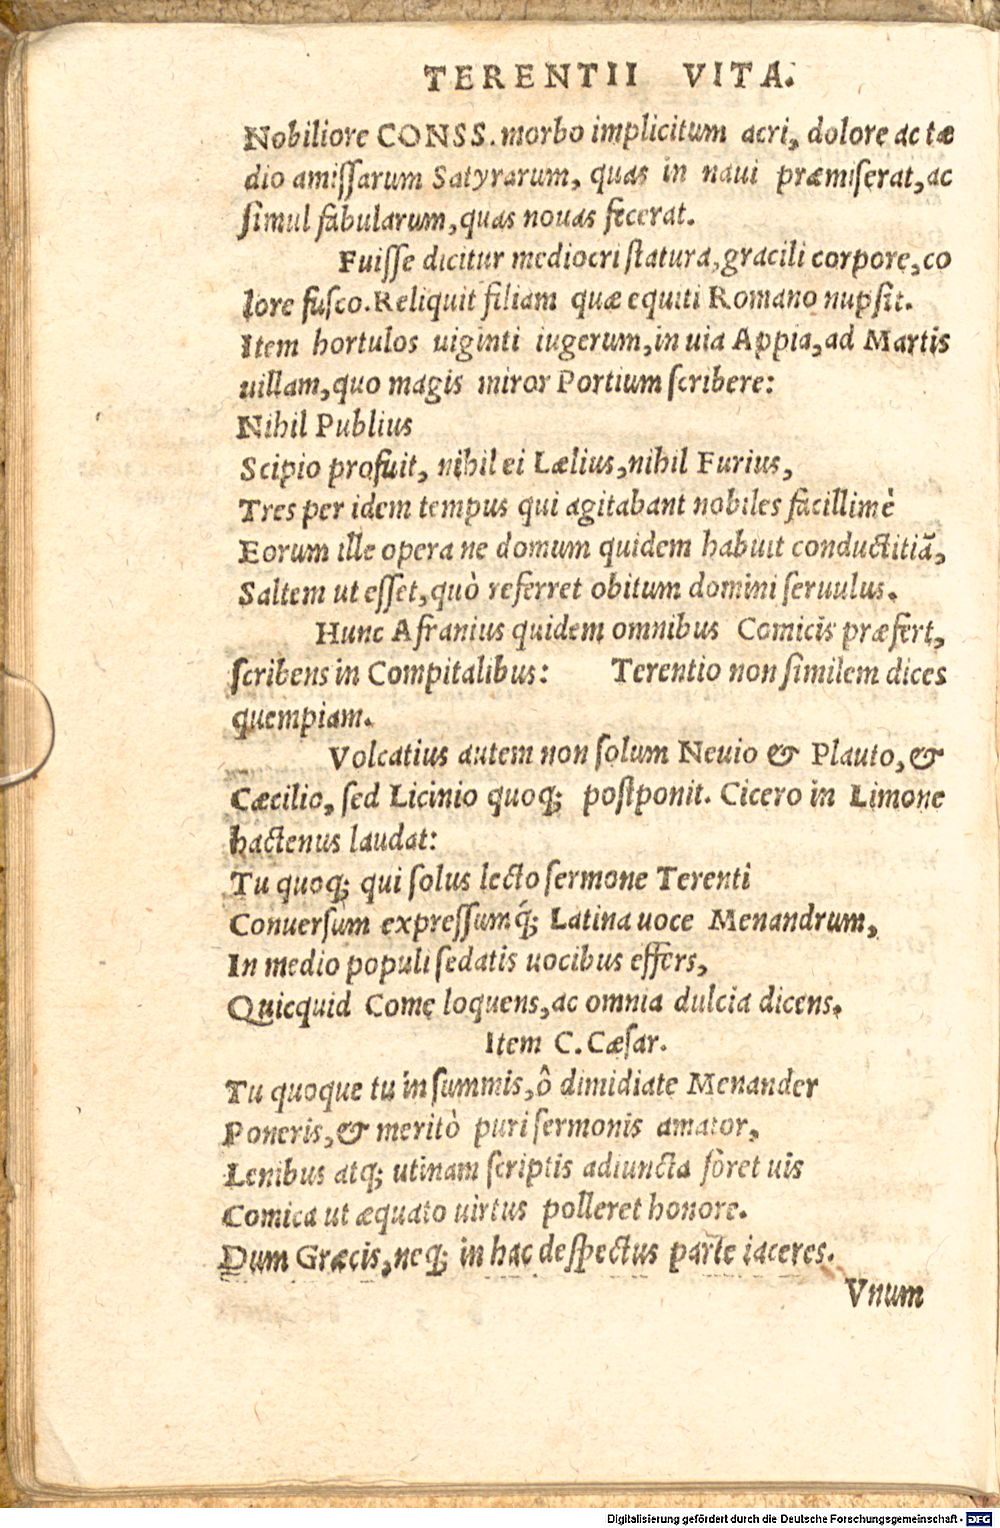 TERENTII VITA.
Nobiliore CONSS. morbo implicitum acri, dolore ac tæ
dio amissarum Satyrarum, quas in naui præmiserat, ac
simul fabularum, quas nouas fecerat.
Fuisse dicitur mediocri statura, gracili corpore, co
lore fusco. Reliquit filiam quæ equiti Romano nupsit.
Item hortulos uiginti iugerum, in uia Appia, ad Martis
uillam, quo magis miror Portium scribere:
Nihil Publius
Scipio profuit, nihil ei Lælius, nihil Furius,
Tres per idem tempus qui agitabant nobiles facillimè
Eorum ille opera ne domum quidem habuit conductitiã,
Saltem ut esset, quò referret obitum domini seruulus.
Hunc Afranius quidem omnibus Comicis præfert,
scribens in Compitalibus: Terentio non similem dices
quempiam.
Volcatius autem non solum Neuio & Plauto, &
Cæcilio, sed Licinio quoq; postponit. Cicero in Limone
hactenus laudat:
Tu quoq; qui solus lecto sermone Terenti
Conuersum expressumq́; Latina uoce Menandrum,
In medio populi sedatis uocibus effers,
Quicquid Come loquens, ac omnia dulcia dicens.
Item C. Cæsar.
Tu quoque tu in summis, ô dimidiate Menander
Poneris, & meritò puri sermonis amator,
Lenibus atq; utinam scriptis adiuncta foret uis
Comica ut æquato uirtus polleret honore.
Dum Græcis, neq; in hac despectus parte iaceres.
Vnum
Digitalisierung gefördert durch die Deutsche Forschungsgemeinschaft - DFG